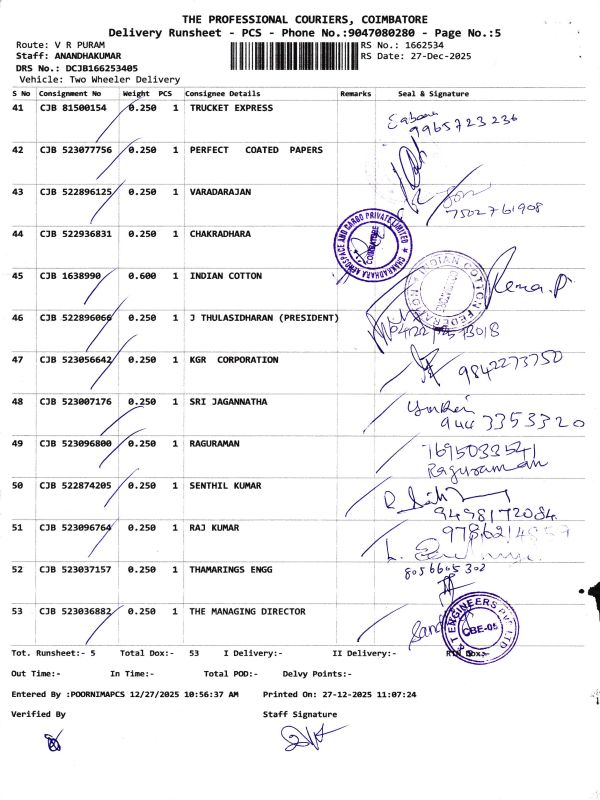 THE PROFESSIONAL COURIERS, COIMBATORE
Delivery Runsheet - PCS - Phone No.:9047080280 - Page No.:5
Route: V R PURAM
RS No.: 1662534
Staff: ANANDHAKUMAR
RS Date: 27-Dec-2025
DRS No.: DCJB166253405
Vehicle: Two Wheeler Delivery
S No Consignment No Weight PCS Consignee Details Remarks Seal & Signature
41 CJB 81500154 0.250 1 TRUCKET EXPRESS
9965723236
42 CJB 523077756 0.250 1 PERFECT COATED PAPERS
43 CJB 522896125 0.250 1 VARADARAJAN
7502761908
44 CJB 522936831 0.250 1 CHAKRADHARA
CHAKRADHARA AEROSPACE AND CARGO PRIVATE LIMITED
COIMBATORE
45 CJB 1638990 0.600 1 INDIAN COTTON
INDIAN COTTON FEDERATION
46 CJB 522896066 0.250 1 J THULASIDHARAN (PRESIDENT)
47 CJB 523056642 0.250 1 KGR CORPORATION
9842273750
48 CJB 523007176 0.250 1 SRI JAGANNATHA
49 CJB 523096800 0.250 1 RAGURAMAN
Raguraman
50 CJB 522874205 0.250 1 SENTHIL KUMAR
9498172084
51 CJB 523096764 0.250 1 RAJ KUMAR
52 CJB 523037157 0.250 1 THAMARINGS ENGG
8056605302
53 CJB 523036882 0.250 1 THE MANAGING DIRECTOR
ENGINEERS PVT LTD
CBE-05
Tot. Runsheet:- 5 Total Dox:- 53 I Delivery:- II Delivery:- RTN Dox:-
Out Time:- In Time:- Total POD:- Delvy Points:-
Entered By :POORNIMAPCS 12/27/2025 10:56:37 AM Printed On: 27-12-2025 11:07:24
Verified By Staff Signature